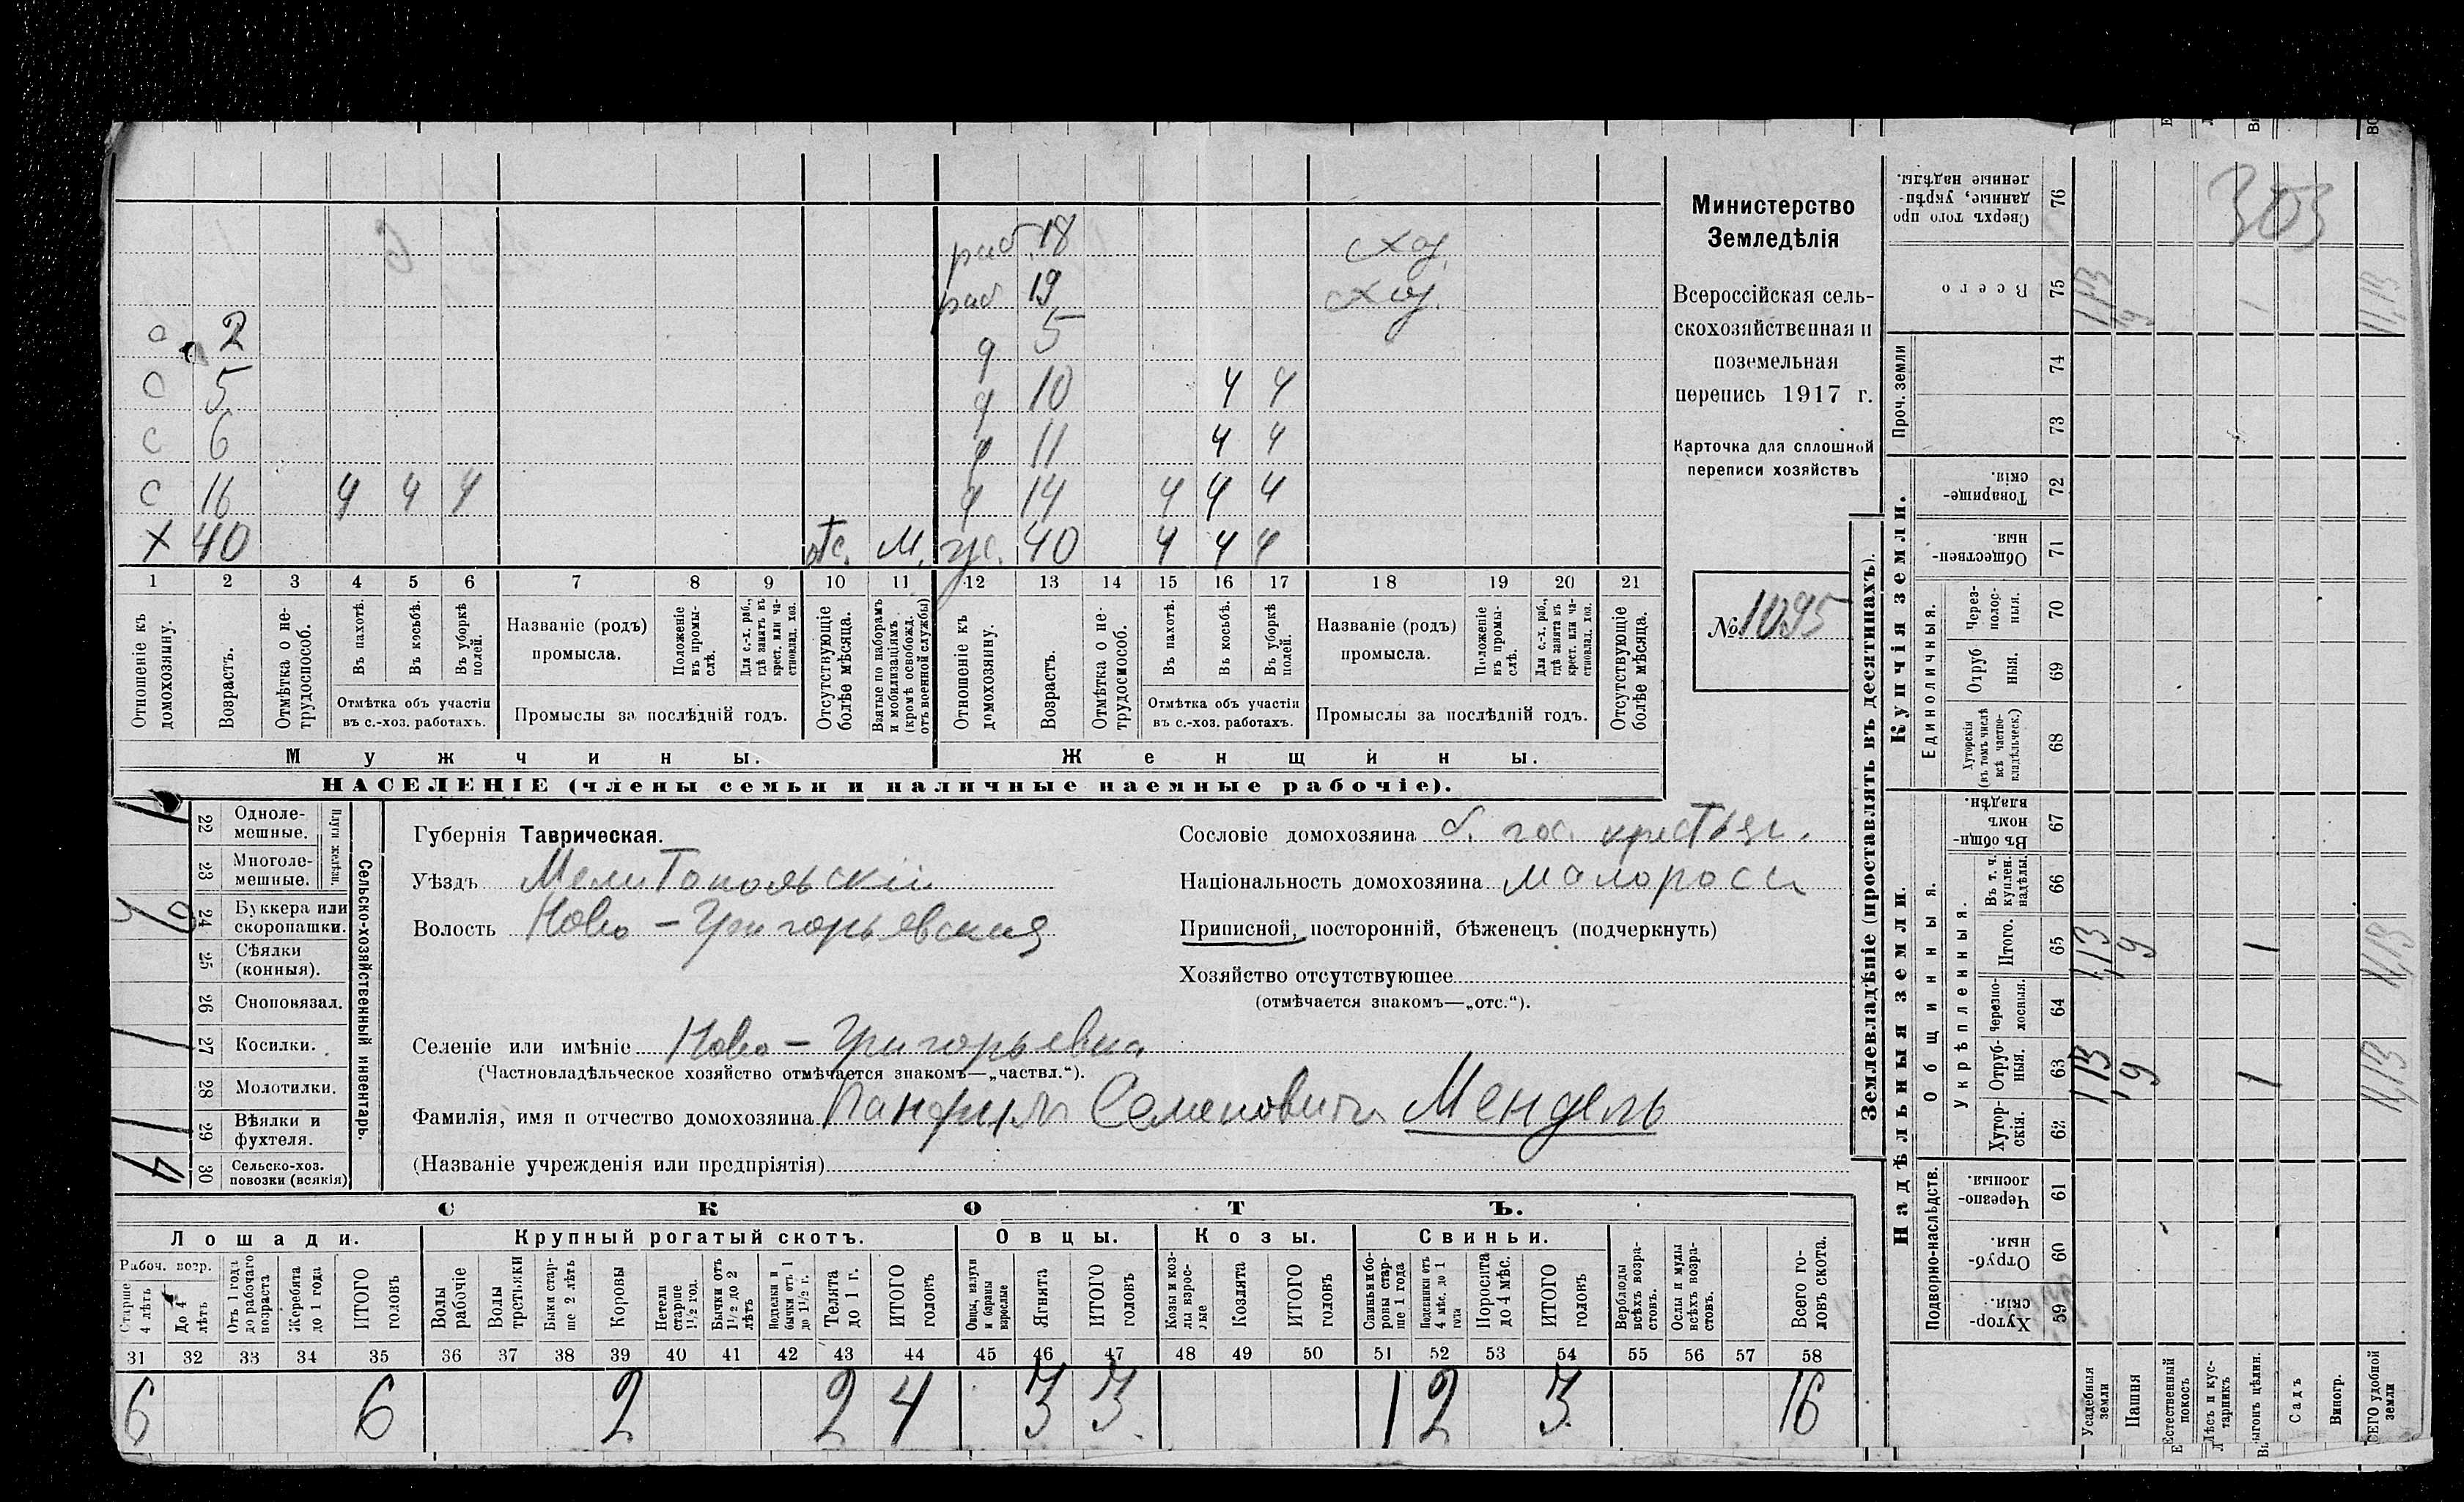 303
Министерство
Земледѣлія
Всероссійская сель-
скохозяйственная и
поземельная
перепись 1917 г.
Карточка для сплошной
переписи хозяйствъ
№ 1095
раб. 18
раб 19
с 2 д 5
с 5 д 10 ч ч
с 6 д 11 ч ч
с 16 ч ч ч д 14 ч ч ч
х 40 отс. м. ж. 40 ч ч ч
1 2 3 4 5 6 7 8 9 10 11 12 13 14 15 16 17 18 19 20 21
Отношеніе къ домохозяину.
Возрастъ.
Отмѣтка о не-трудоспособ.
Въ пахотѣ.
Въ косьбѣ.
Въ уборкѣ полей.
Отмѣтка объ участіи
въ с.-хоз. работахъ.
Названіе (родъ)
промысла.
Положеніе въ промы-слѣ.
Для с.-х. раб., гдѣ занятъ въ крест. или ча-стновлад. хоз.
Промыслы за послѣдній годъ.
Отсутствующіе болѣе мѣсяца.
Взятые по наборамъ и мобилизаціямъ (кромѣ освобожд. отъ военной службы)
Отношеніе къ домохозяину.
Возрастъ.
Отмѣтка о не-трудоспособ.
Въ пахотѣ.
Въ косьбѣ.
Въ уборкѣ полей.
Отмѣтка объ участіи
въ с.-хоз. работахъ.
Названіе (родъ)
промысла.
Положеніе въ промы-слѣ.
Для с.-х. раб., гдѣ занята въ крест. или ча-стновлад. хоз.
Промыслы за послѣдній годъ.
Отсутствующіе болѣе мѣсяца.
Мужчины. Женщины.
НАСЕЛЕНІЕ (члены семьи и наличные наемные рабочіе).
Сельско-хозяйственный инвентарь.
Плуги желѣзн.
22 Одноле-мешные. 1
23 Многоле-мешные.
24 Буккера или скоропашки.
25 Сѣялки (конныя).
26 Сноповязал.
27 Косилки. 1
28 Молотилки.
29 Вѣялки и фухтеля. 1
30 Сельско-хоз. повозки (всякія) 4
Губернія Таврическая.
Уѣздъ Мелитопольскій
Волость Ново-Григорьевская
Сословіе домохозяина б. гос. крестьян.
Національность домохозяина малоросс
Приписной, посторонній, бѣженецъ (подчеркнуть)
Хозяйство отсутствующее
(отмѣчается знакомъ—„отс.“).
Селеніе или имѣніе Ново-Григорьевка
(Частновладѣльческое хозяйство отмѣчается знакомъ—„частвл.“).
Фамилія, имя и отчество домохозяина Панфилъ Семеновичъ Мендель
(Названіе учрежденія или предпріятія)
СКОТЪ.
Лошади. Крупный рогатый скотъ. Овцы. Козы. Свиньи.
Рабоч. возр.
Старше 4 лѣтъ
До 4 лѣтъ
Отъ 1 года до рабочаго возраста
Жеребята до 1 года
ИТОГО головъ
Волы рабочіе
Волы третьяки
Быки стар-ше 2 лѣтъ
Коровы
Нетели старше 1½ год.
Бычки отъ 1½ до 2 лѣтъ
Подтелки и бычки отъ 1 до 1½ г.
Телята до 1 г.
ИТОГО головъ
Овцы, валухи и бараны взрослые
Ягнята
ИТОГО головъ
Козы и коз-лы взрос-лые
Козлята
ИТОГО головъ
Свиньи и бо-ровы стар-ше 1 года
Подсвинки отъ 4 мѣс. до 1 года
Поросята до 4 мѣс.
ИТОГО головъ
Верблюды всѣхъ возра-стовъ.
Ослы и мулы всѣхъ возра-стовъ.
Всего го-ловъ скота.
31 32 33 34 35 36 37 38 39 40 41 42 43 44 45 46 47 48 49 50 51 52 53 54 55 56 57 58
6 6 2 2 4 3 3 1 2 3 16
Землевладѣніе (проставлять въ десятинахъ).
Купчія земли.
Надѣльныя земли.
Сверхъ того про данные, укрѣп-ленные надѣлы. 76
Всего 75
Проч. земли 74 73
Товарище-скія. 72
Обществен-ныя. 71
Единоличныя.
Через-полос-ныя. 70
Отруб ныя. 69
Хуторскія (въ томъ числѣ всѣ частно-владѣльческ.) 68
Общинныя.
Въ общи-номъ владѣн. 67
Укрѣпленныя.
Въ т. ч. куплен. надѣлы. 66
Итого. 65 1,13 9 1 11,13
Черезпо-лосныя. 64
Отруб-ныя. 63 1,13 9 1 11,13
Хутор-скія. 62
Подворно-наслѣдств.
Черезпо-лосныя. 61
Отруб-ныя. 60
Хутор-скія. 59
Усадебныя земли
Пашня
Естественный покосъ
Лѣсъ и кус-тарникъ
Выгонъ цѣлин.
Садъ
Виногр.
ВСЕГО удобной земли